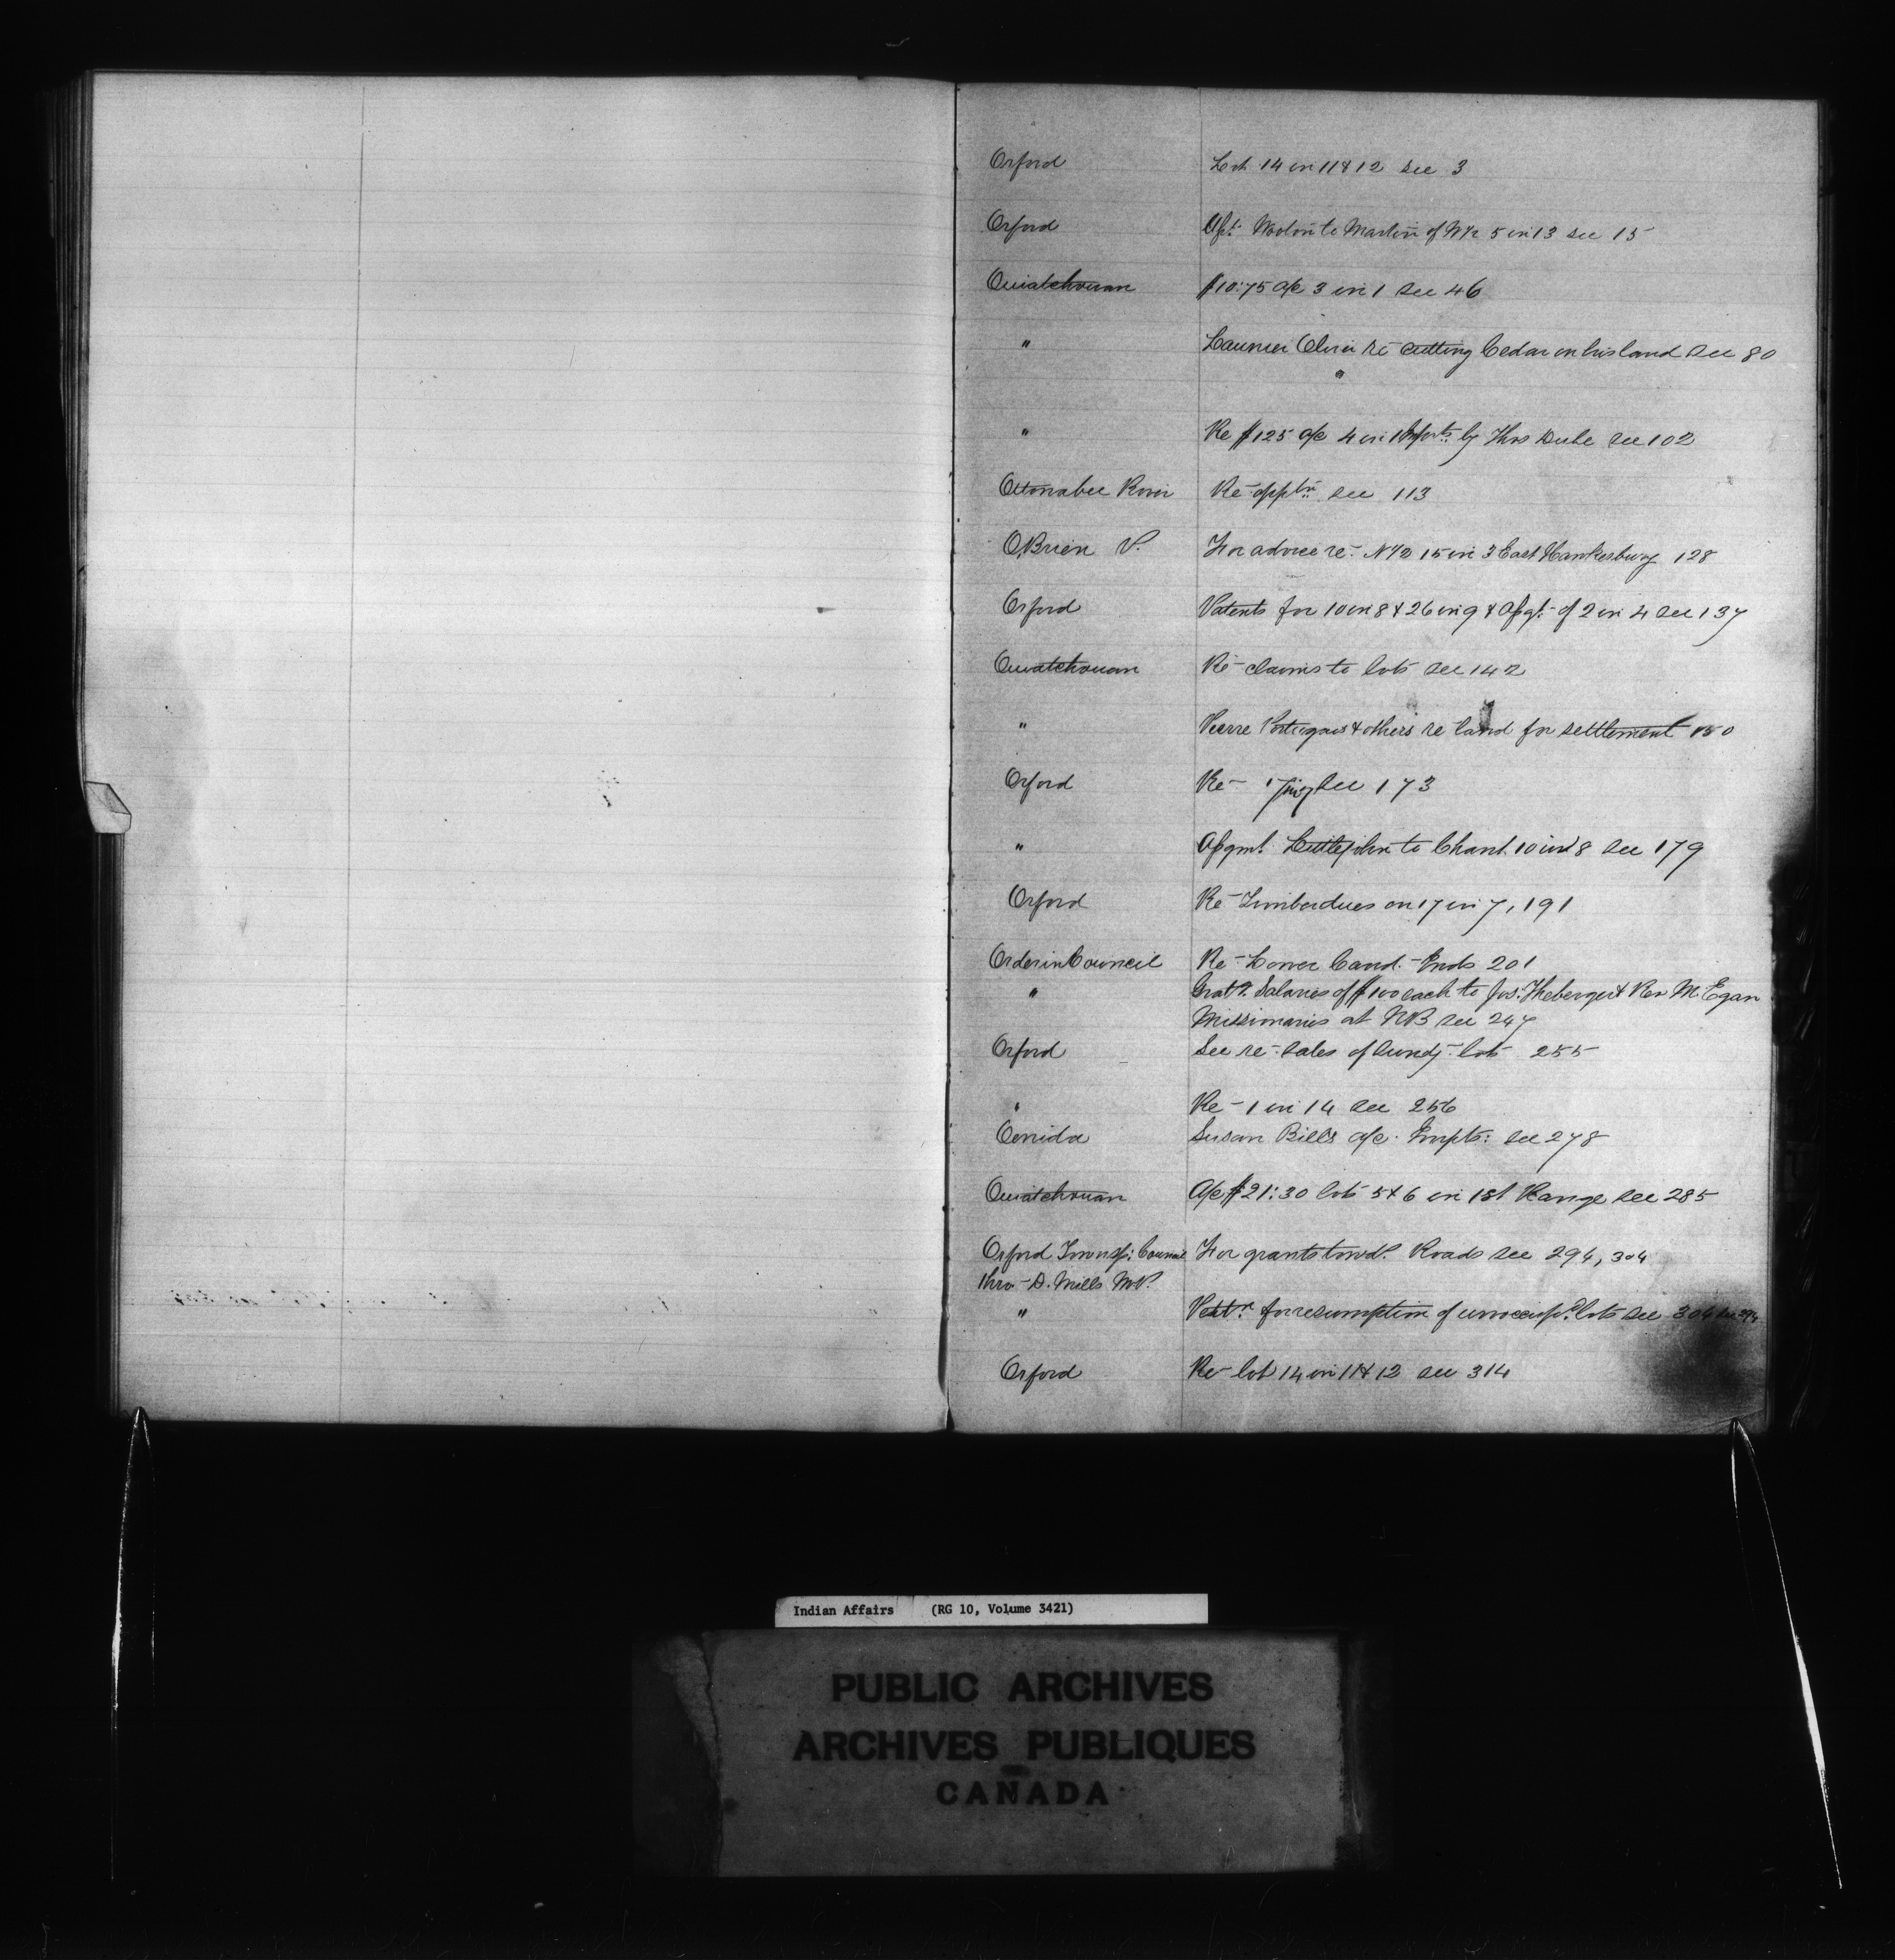 Orford Lot 14 in 11 & 12 see 3
Orford Asst. to Martin of N½ 5 in 13 see 15
Ouiatchouan $10:75 a/c 3 in 1 see 46
" re cutting Cedar on his land see 80
"
" Re $125 a/c 4 in 1 by Thos Dube see 102
Ottonabee River Re appltn see 113
OBrien P. For advice re N½ 15 in 3 East Hawkesbury 128
Orford Patents for 10 in 8 & 26 in 9 & Assgt of 2 in 4 see 137
Ouiatchouan Re claims to lots see 142
" Pierre & others re land for settlement 150
Orford Re 17 in 7 see 173
" Assgmt Littlejohn to Chant 10 in 8 see 179
Orford Re Timber dues on 17 in 7, 191
Order in Council Re Lower Cand. Inds 201
" Salaries of $100 each to Jos: Theberge & Rev M. Egan
Missionaries at NB see 247
Orford See re sales of sundy lots 255
" Re 1 in 14 see 256
Oenida Susan Bills a/c Impts: see 278
Ouiatchouan A/c $21:30 lots 5 & 6 in 1st Range see 285
Orford Townsp: Council For grants towds Roads see 294, 304
thro D. Mills M.P.
" Petitn for resumption of unoccupd lots see 304 see 294
Orford Re lot 14 in 11 & 12 see 314
Indian Affairs (RG 10, Volume 3421)
PUBLIC ARCHIVES
ARCHIVES PUBLIQUES
CANADA